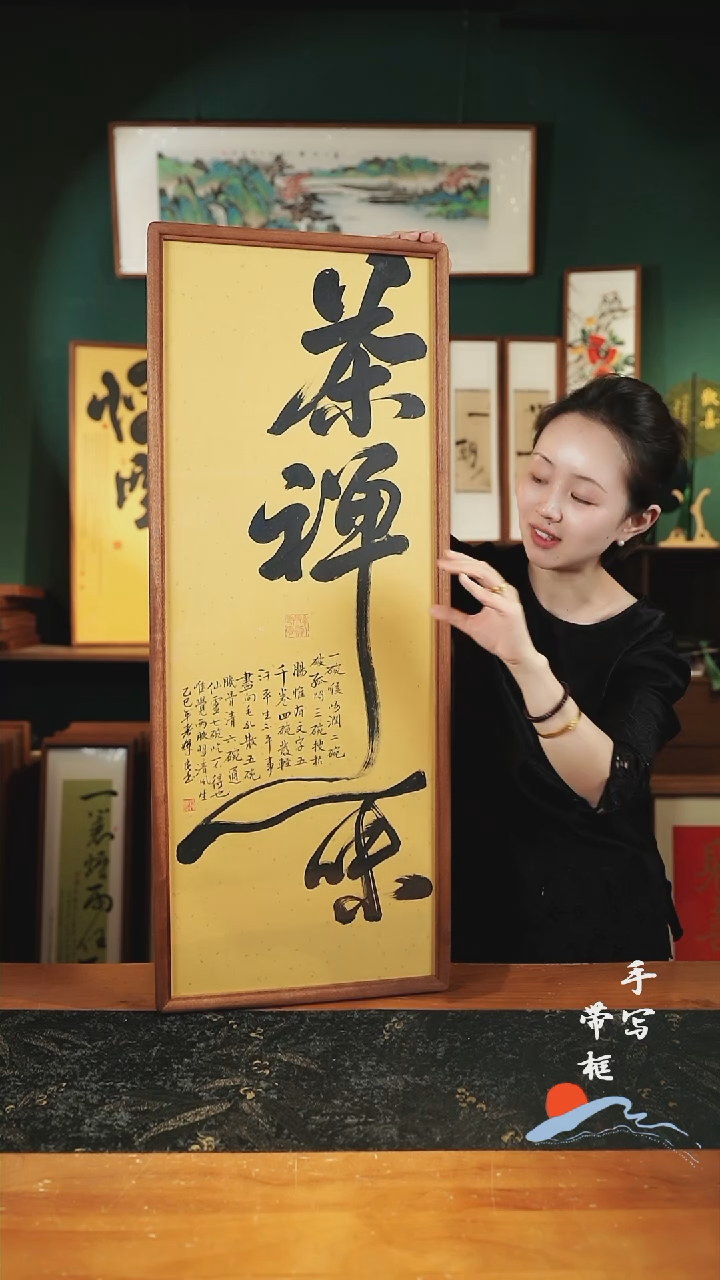 茶禅一味
一碗喉吻润二碗
破孤闷三碗搜枯
腸惟有文字五
千卷四碗發輕
汗平生不平事
盡向毛孔散五碗
肌骨清六碗通
仙靈七碗吃不得也
唯覺两腋习习清风生
乙巳年
一蓑烟雨任
手写
带框